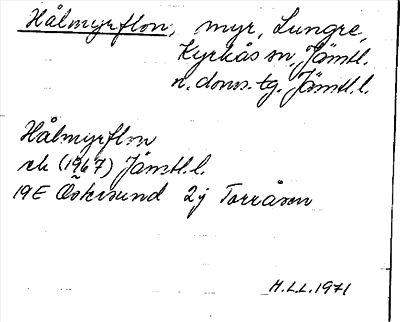 Hålmyrflon, myr, Lungre,
Kyrkås sn, Jämtl.
n. doms.-tg. Jämtl.l.
Hålmyrflon
ek (1967) Jämtl.l.
19E Östersund 2j Torråsen
H.L.L. 1971